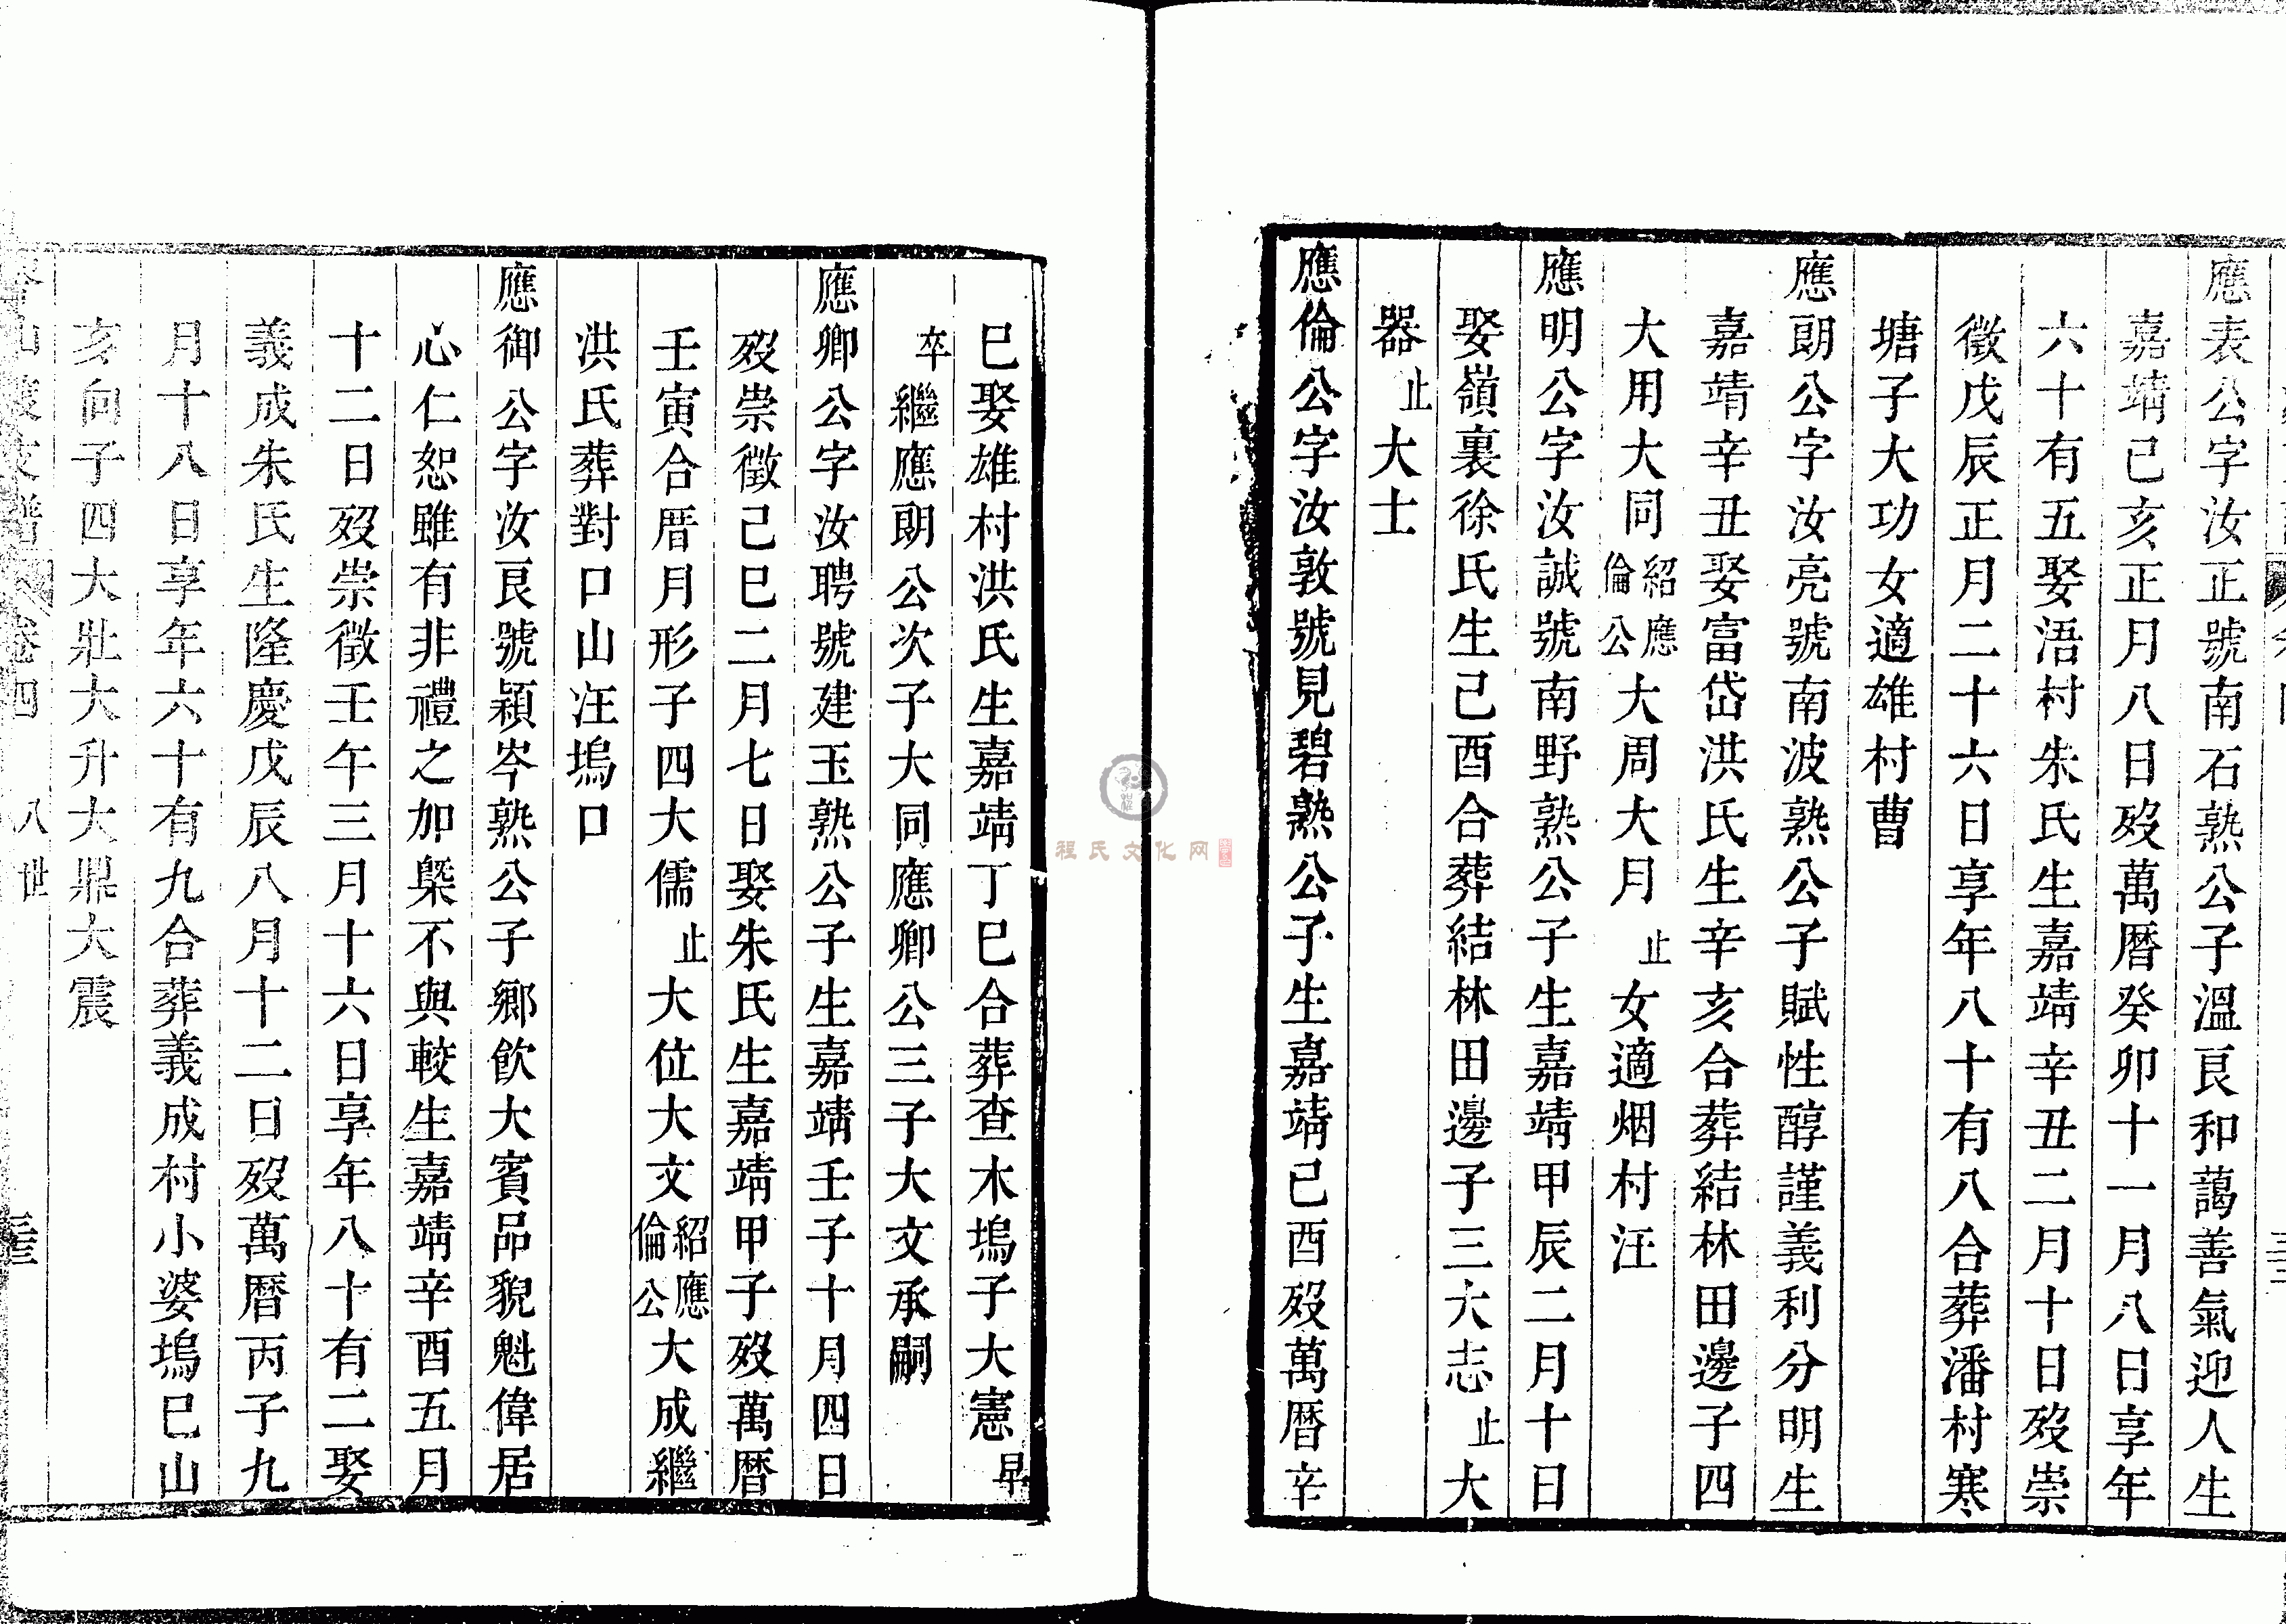 應表公字汝正號南石熟公子溫良和藹善氣迎人生
嘉靖己亥正月八日歿萬曆癸卯十一月八日享年
六十有五娶浯村朱氏生嘉靖辛丑二月十日歿崇
徵戊辰正月二十六日享年八十有八合葬潘村寒
塘子大功女適雄村曹
應朗公字汝亮號南波熟公子賦性醇謹義利分明生
嘉靖辛丑娶富岱洪氏生辛亥合葬結林田邊子四
大用大同紹應倫公大周大月止女適烟村汪
應明公字汝誠號南野熟公子生嘉靖甲辰二月十日
娶嶺裏徐氏生己酉合葬結林田邊子三大志止大
器止大士
應倫公字汝敦號見碧熟公子生嘉靖己酉歿萬曆辛
巳娶雄村洪氏生嘉靖丁巳合葬查木塢子大憲早
卒繼應朗公次子大同應卿公三子大文承嗣
應卿公字汝聘號建玉熟公子生嘉靖壬子十月四日
歿崇徵己巳二月七日娶朱氏生嘉靖甲子歿萬曆
壬寅合厝月形子四大儒止大位大文紹應倫公大成繼
洪氏葬對口山汪塢口
應御公字汝良號穎岑熟公子鄉飲大賓品貌魁偉居
心仁恕雖有非禮之加槩不與較生嘉靖辛酉五月
十二日歿崇徵壬午三月十六日享年八十有二娶
義成朱氏生隆慶戊辰八月十二日歿萬曆丙子九
月十八日享年六十有九合葬義成村小婆塢巳山
亥向子四大壯大升大鼎大震
支譜 卷四 八世
程氏文化网